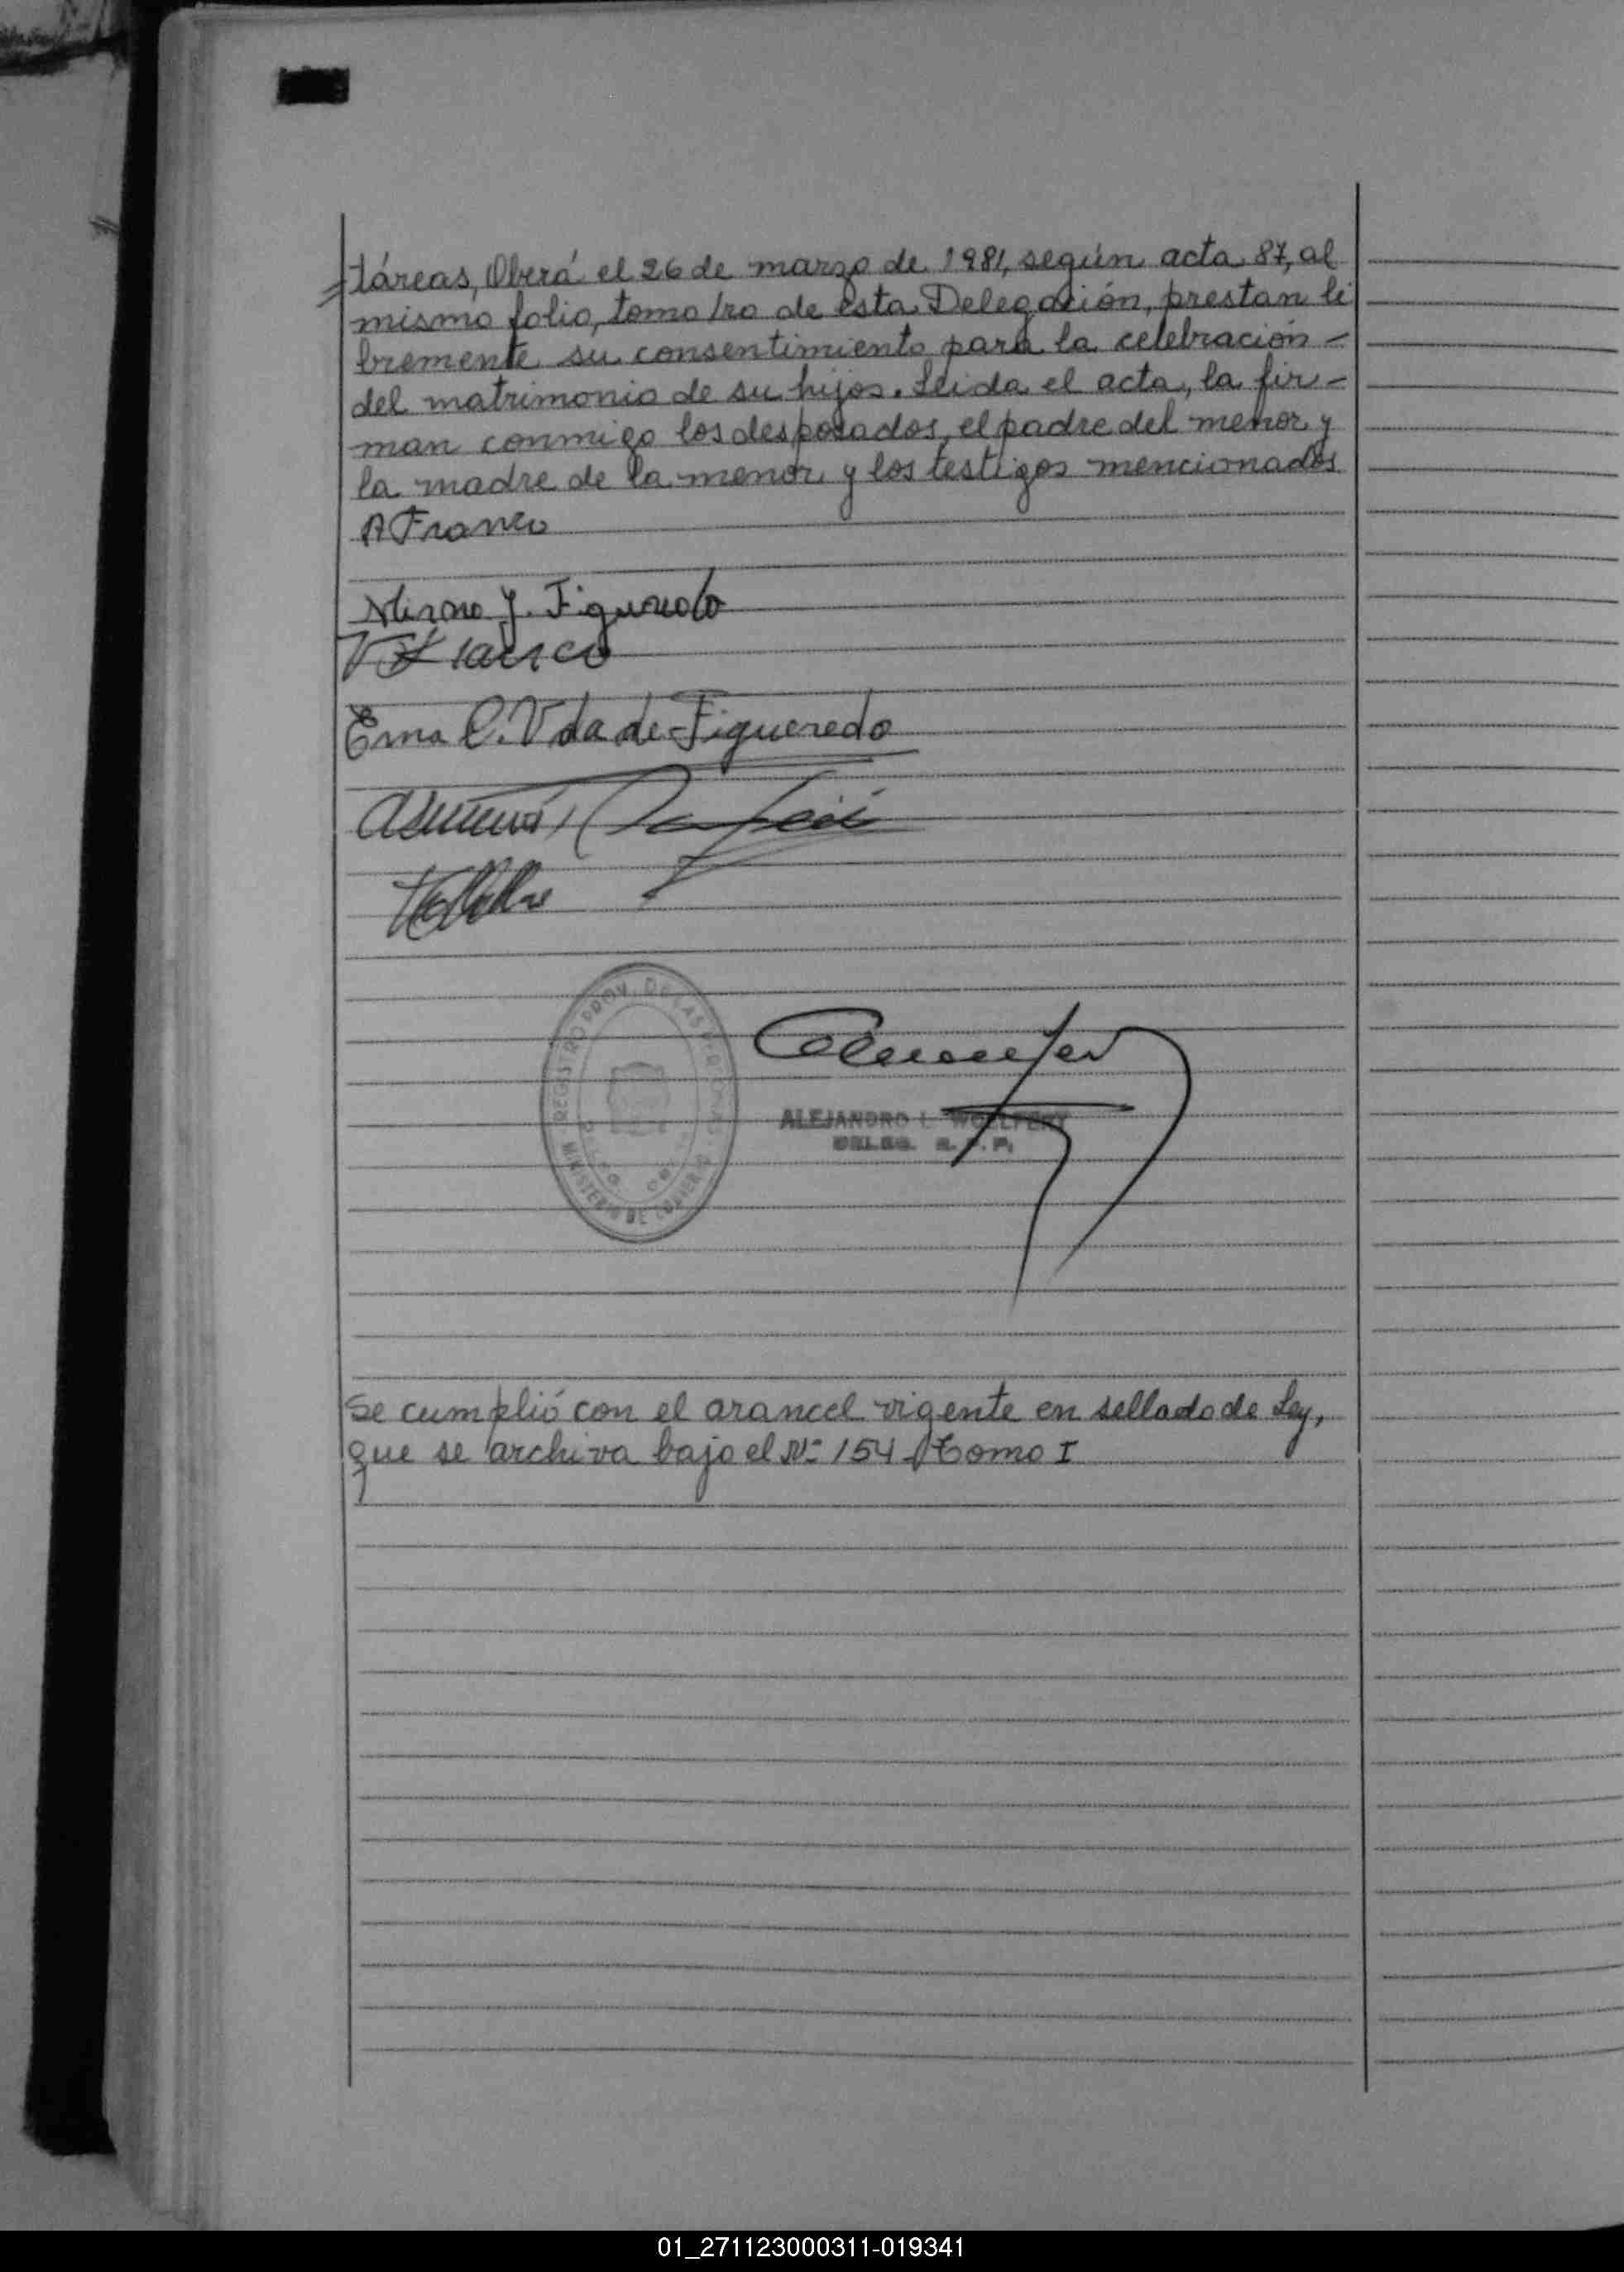 táreas, Oberá el 26 de marzo de 1981, según acta 87, al
mismo folio, tomo 1ro de esta Delegación, prestan li
bremente su consentimiento para la celebración -
del matrimonio de su hijos. Leida el acta, la fir-
man conmigo los desposados, el padre del menor y
la madre de la menor y los testigos mencionados
A Franco
J. Figueredo
Franco
Ema C. Vda de Figueredo
REGISTRO PROV. DE LAS PERSONAS
MINISTERIO DE GOBIERNO
ALEJANDRO L.
DELEG. R. P. P.
Se cumplió con el arancel vigente en sellado de Ley,
que se archiva bajo el Nº 154 Tomo I
01_271123000311-019341